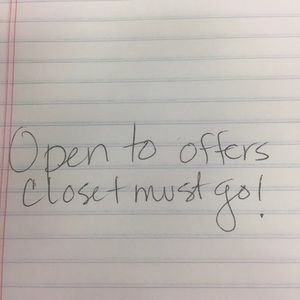 Open to offers
Closet must go!